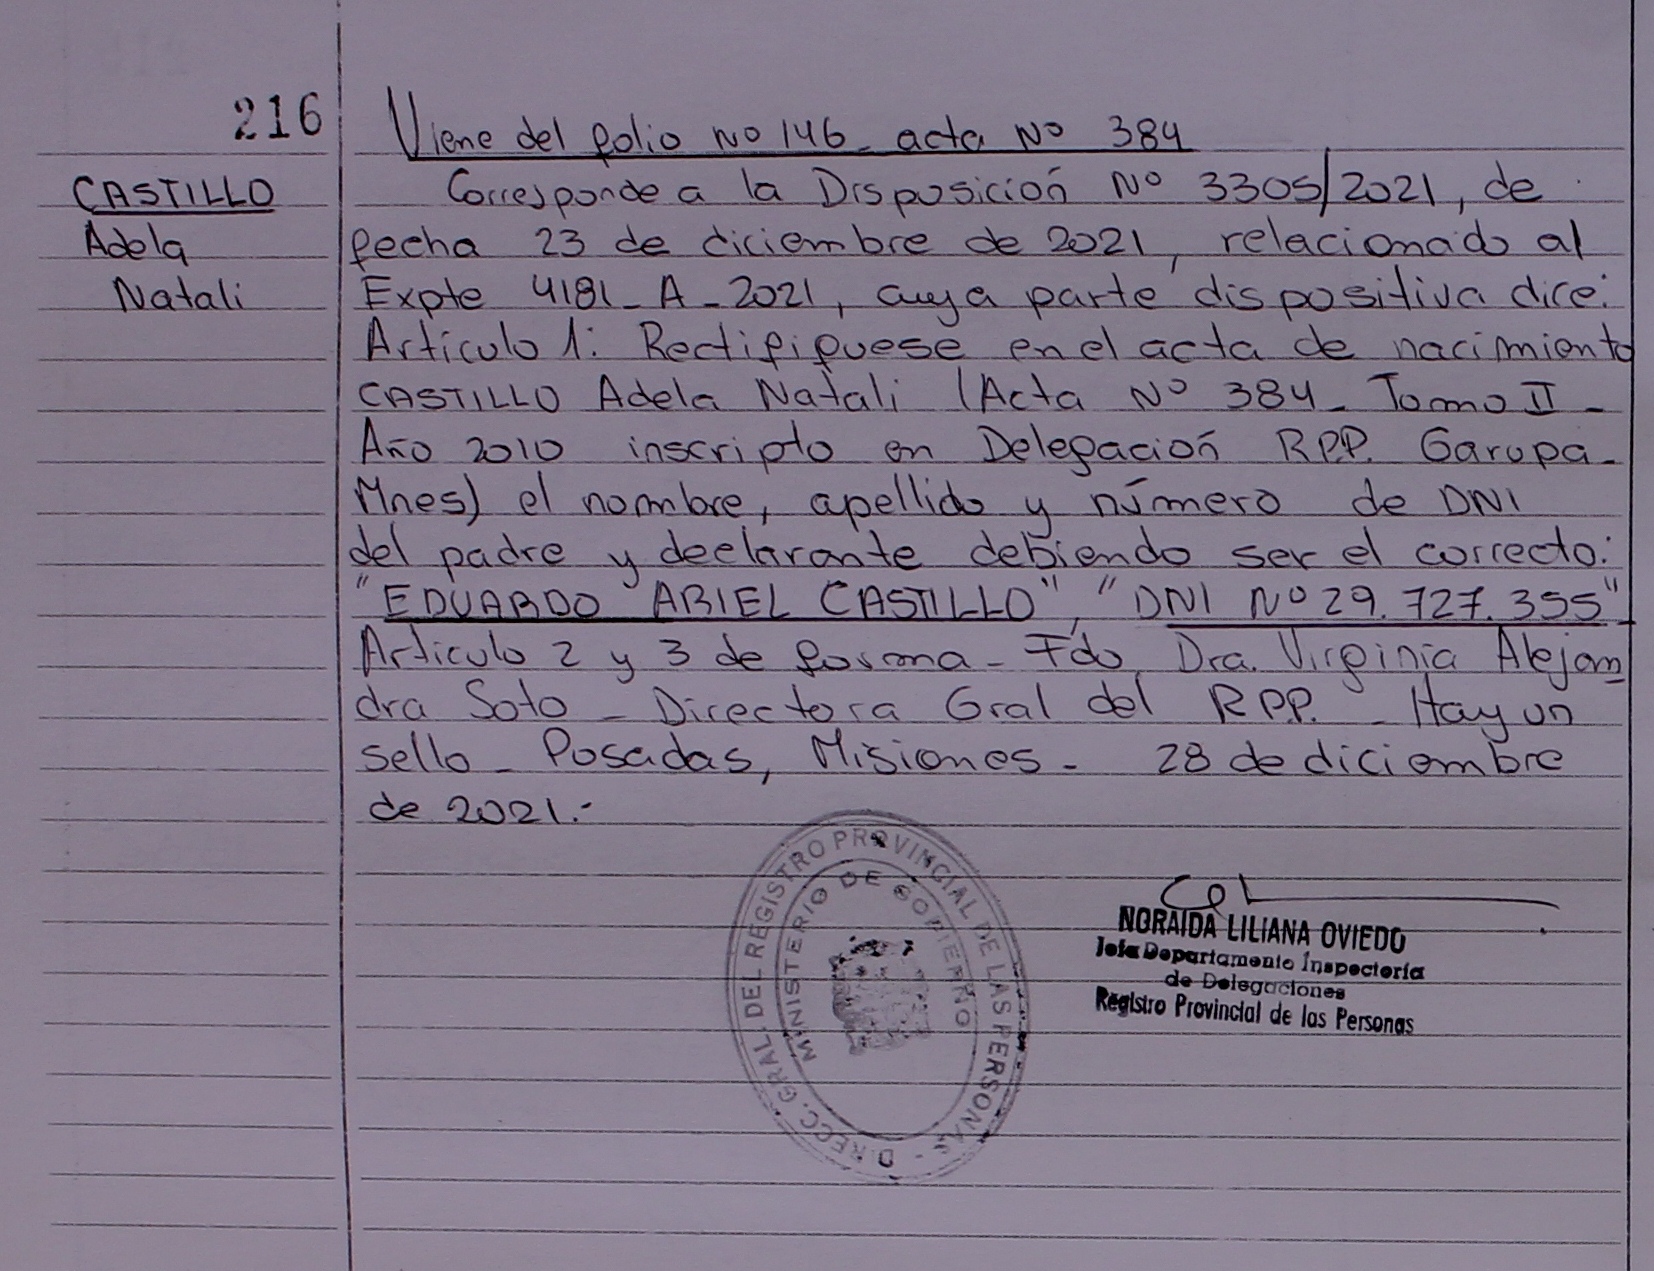 216
CASTILLO
Adela
Natali
Viene del folio No 146_ acta No 384
Corresponde a la Disposición No 3305/2021, de
fecha 23 de diciembre de 2021, relacionado al
Expte 4181_A_2021, cuya parte dispositiva dice:
Artículo 1: Rectifíquese en el acta de nacimiento
CASTILLO Adela Natali (Acta No 384_ Tomo II_
Año 2010 inscripto en Delegación R.P.P. Garupa_
Mnes) el nombre, apellido y número de DNI
del padre y declarante debiendo ser el correcto:
"EDUARDO ARIEL CASTILLO", "DNI No 29.727.355"
Articulo 2 y 3 de forma_ Fdo Dra. Virginia Alejan
dra Soto_ Directora Gral del R.P.P. _ Hay un
sello_ Posadas, Misiones_ 28 de diciembre
de 2021.-
DIRECC. GRAL. DEL REGISTRO PROVINCIAL DE LAS PERSONAS -
MINISTERIO DE GOBIERNO
NORAIDA LILIANA OVIEDO
Jefa Departamento Inspectoría
de Delegaciones
Registro Provincial de las Personas